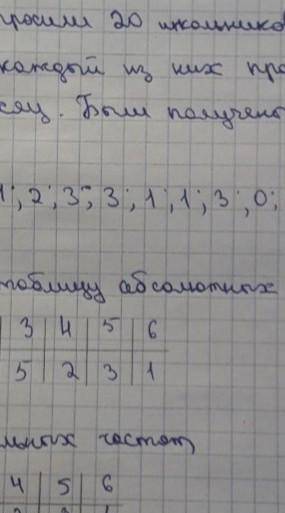 росили 20 школьников
каждый из них про
сяц. Были получены
1; 2; 3; 3; 1; 1; 3; 0;
таблицу абсолютных
3 4 5 6
5 2 3 1
льных частот
4 5 6